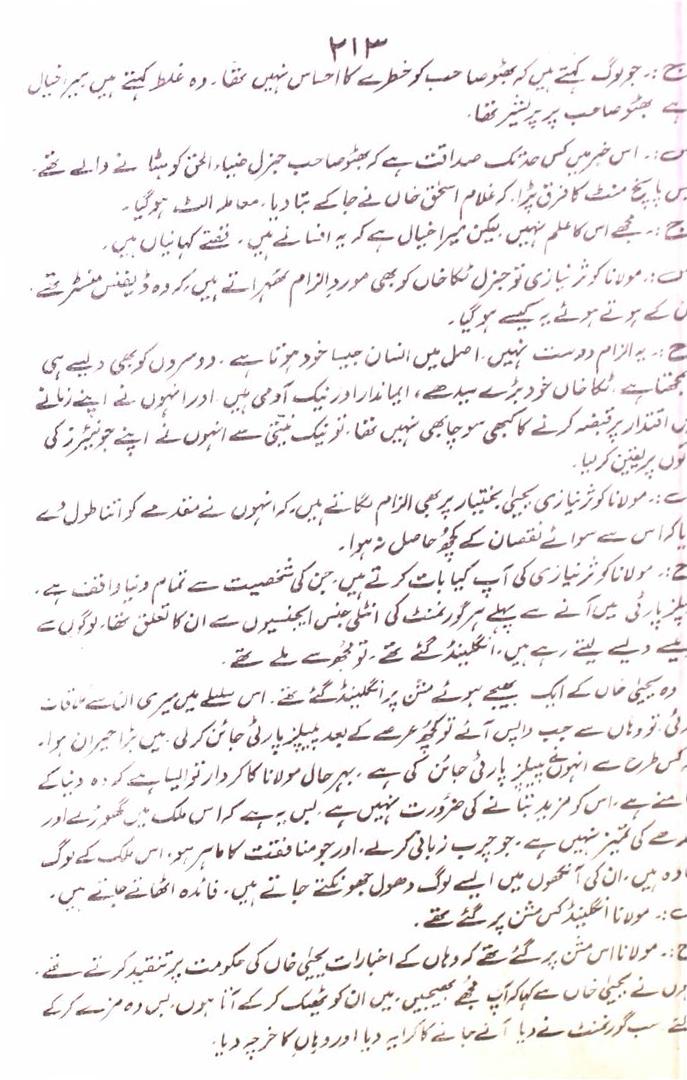 ۲۱۳
ج :۔ جو لوگ کہتے ہیں کہ بھٹو صاحب کو خطرے کا احساس نہیں تھا۔ وہ غلط کہتے ہیں میرا خیال
ہے بھٹو صاحب پر پریشر تھا۔
س :۔ اس خبر میں کس حد تک صداقت ہے کہ بھٹو صاحب جنرل ضیاء الحق کو ہٹانے والے تھے۔
بس پانچ منٹ کا فرق پڑا۔ کہ غلام اسحٰق خاں نے جا کے بتا دیا۔ معاملہ الٹ ہو گیا۔
ج :۔ مجھے اس کا علم نہیں لیکن میرا خیال ہے کہ یہ افسانے ہیں۔ قصے کہانیاں ہیں۔
س :۔ مولانا کوثر نیازی تو جنرل ٹکا خاں کو بھی مورد الزام ٹھہراتے ہیں، کہ وہ ڈیفنس منسٹر تھے۔
ان کے ہوتے ہوئے یہ کیسے ہو گیا۔
ج :۔ یہ الزام درست نہیں۔ اصل میں انسان جیسا خود ہوتا ہے۔ دوسروں کو بھی ویسے ہی
سمجھتا ہے۔ ٹکا خاں خود بڑے سیدھے، ایماندار اور نیک آدمی ہیں۔ اور انہوں نے اپنے زمانے
میں اقتدار پر قبضہ کرنے کا کبھی سوچا بھی نہیں تھا۔ تو نیک نیتی سے انہوں نے اپنے جونیئرز کی
باتوں پر یقین کر لیا۔
س :۔ مولانا کوثر نیازی یحییٰ بختیار پر بھی الزام لگاتے ہیں، کہ انہوں نے مقدمے کو اتنا طول دے
دیا کہ اس سے سوائے نقصان کے کچھ حاصل نہ ہوا۔
ج :۔ مولانا کوثر نیازی کی آپ کیا بات کرتے ہیں، جن کی شخصیت سے تمام دنیا واقف ہے۔
پیپلز پارٹی میں آنے سے پہلے ہر گورنمنٹ کی انٹیلی جنس ایجنسیوں سے ان کا تعلق تھا۔ لوگوں سے
پیسے ویسے لیتے رہے ہیں۔ انگلینڈ گئے تھے۔ تو مجھ سے ملے تھے۔
وہ یحییٰ خاں کے ایک بھیجے ہوئے مشن پر انگلینڈ گئے تھے۔ اس سلسلے میں میری ان سے ملاقات
ہوئی۔ تو وہاں سے جب واپس آئے تو کچھ عرصے کے بعد پیپلز پارٹی جائن کر لی۔ میں بڑا حیران ہوا۔
کہ کس طرح سے انہوں نے پیپلز پارٹی جائن کی ہے۔ بہر حال مولانا کا کردار تو ایسا ہے کہ وہ دنیا کے
سامنے ہے۔ اس کو مزید بتانے کی ضرورت نہیں ہے۔ بس یہ ہے کہ اس ملک میں گھوڑے اور
گدھے کی تمیز نہیں ہے۔ جو چرب زبانی کرے۔ اور جو منافقت کا ماہر ہو۔ اس ملک کے لوگ
سادہ ہیں، ان کی آنکھوں میں ایسے لوگ دھول جھونکتے جاتے ہیں۔ فائدہ اٹھاتے جاتے ہیں۔
س :۔ مولانا انگلینڈ کس مشن پر گئے تھے۔
ج :۔ مولانا اس مشن پر گئے تھے کہ وہاں کے اخبارات یحییٰ خاں کی حکومت پر تنقید کرتے تھے۔
انہوں نے یحییٰ خاں سے کہا کہ آپ مجھے بھیجیں، میں ان کو ٹھیک کر کے آتا ہوں۔ بس وہ مزے کر کے
سب گورنمنٹ نے دیا آنے جانے کا کرایہ دیا اور وہاں کا خرچہ دیا۔